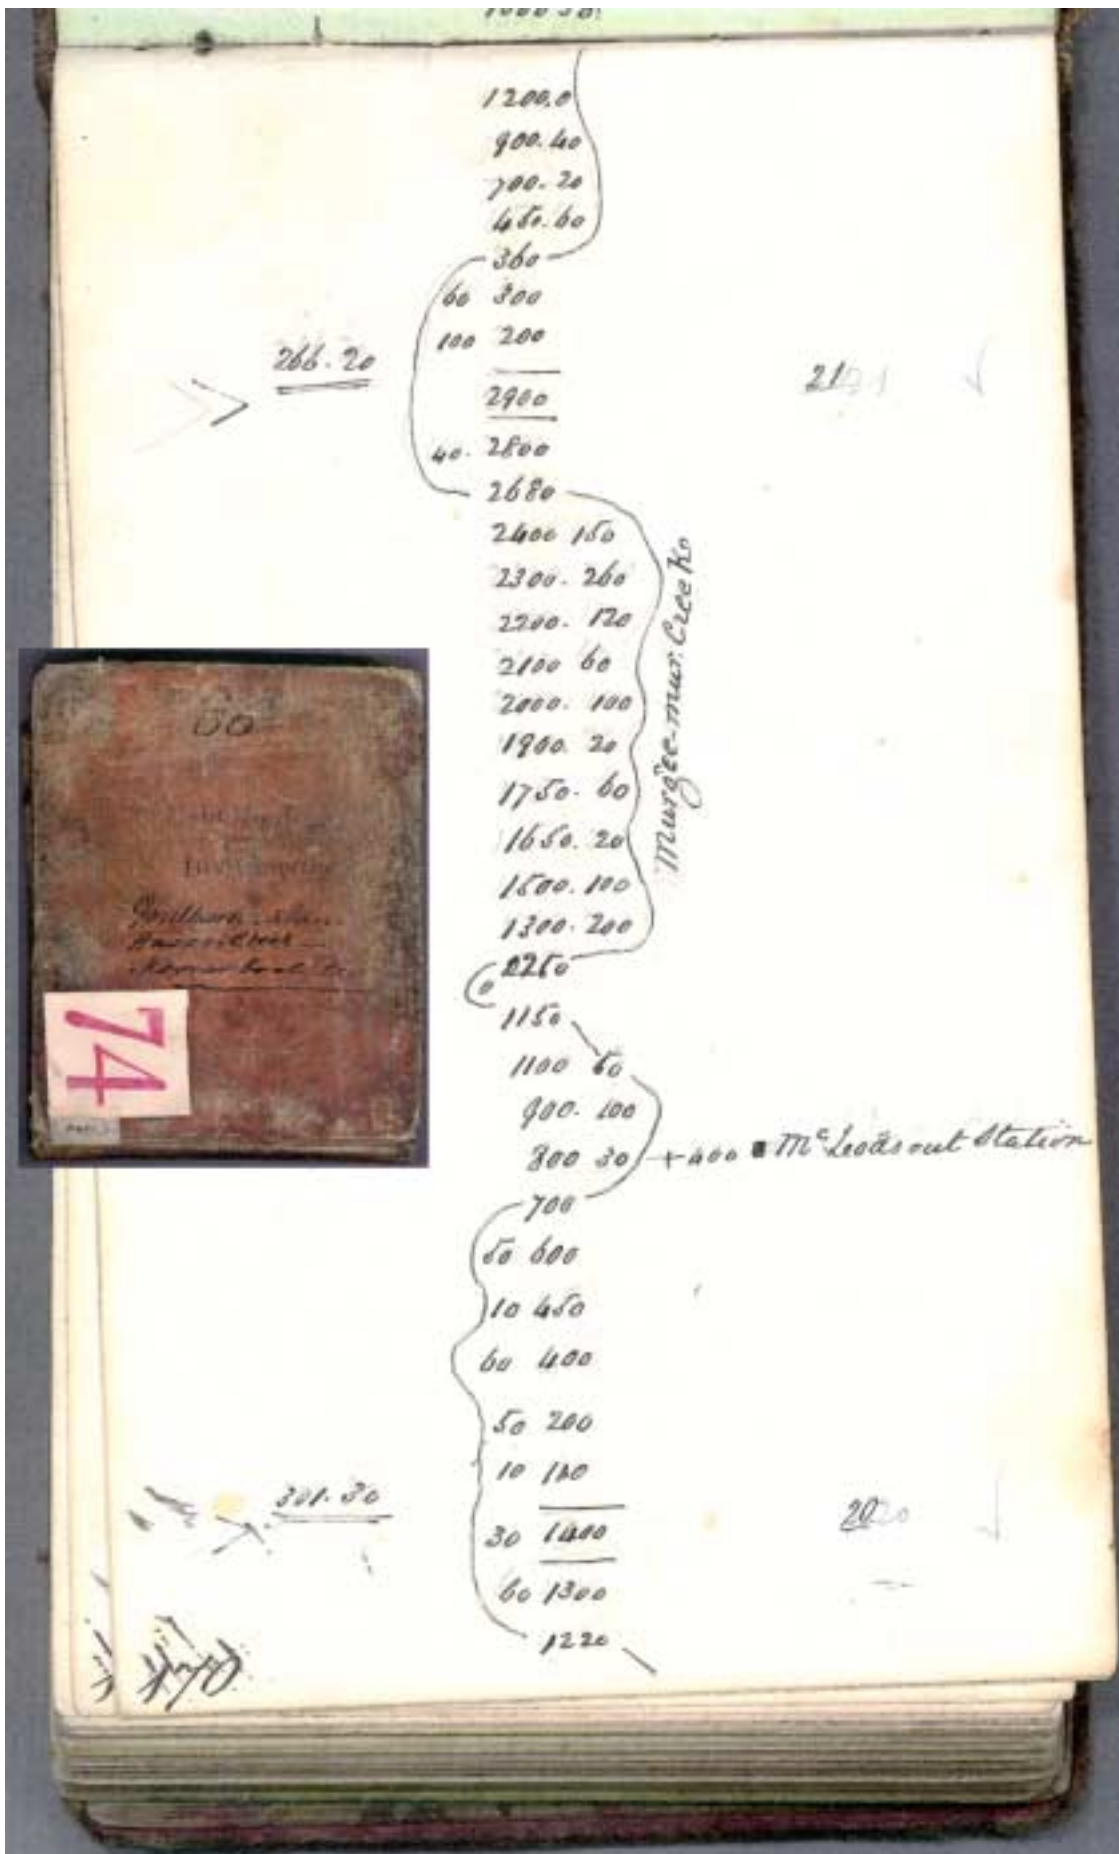 1200.0
900.40
700.20
450.60
360
60 300
100 200
266.20
2900
21 21
40. 2800
2680
2400 150
2300. 260
2200. 120
2100 60
2000. 100
1900. 20
1750. 60
1650. 20
1500. 100
1300. 200
Murgee-mur. Creek
0
1150
1100 50
900. 100
800 30 + 400 Mc Leods out Station
700
50 600
10 450
60 400
50 200
10 110
301.30
30 1400
20 20
60 1300
1220
74